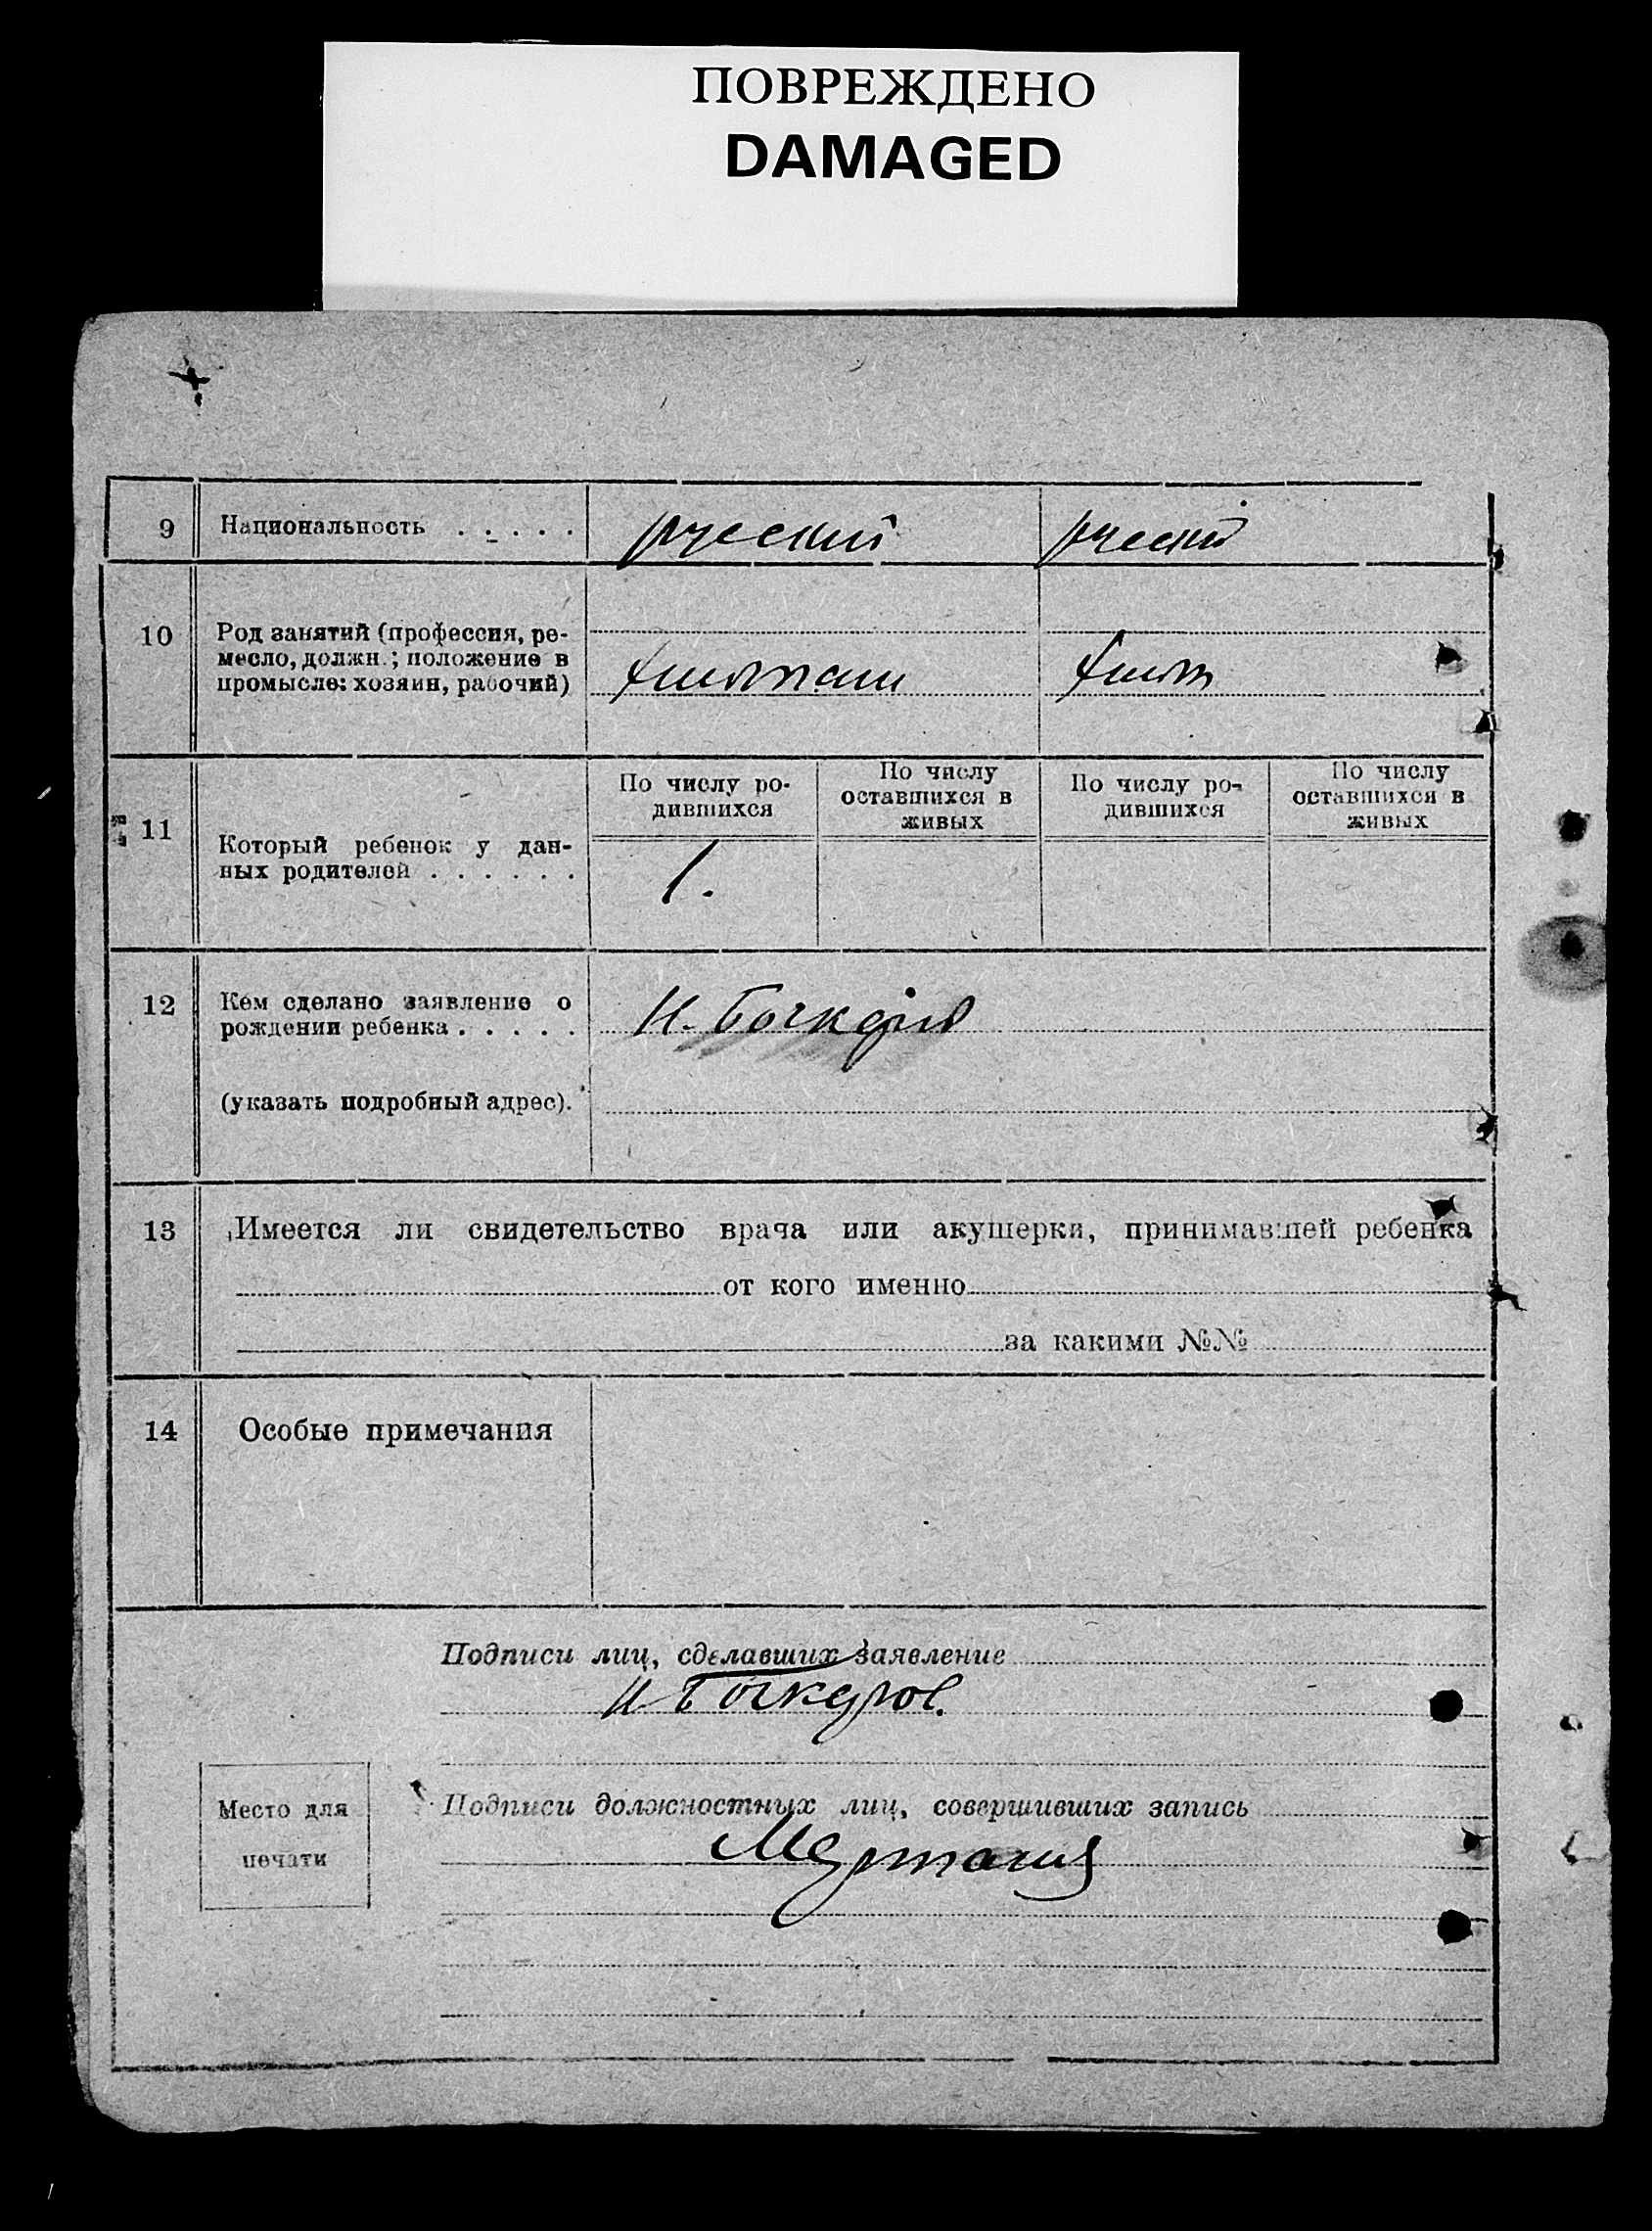 ПОВРЕЖДЕНО
DAMAGED
9 Национальность . . . . . русский русский
10 Род занятий (профессия, ре-
месло, должн.; положение в
промысле: хозяин, рабочий)
11 Который ребенок у дан-
ных родителей . . . . . .
По числу ро-
дившихся
По числу
оставшихся в
живых
По числу ро-
дившихся
По числу
оставшихся в
живых
1.
12 Кем сделано заявление о
рождении ребенка . . . . . И.
(указать подробный адрес).
13 Имеется ли свидетельство врача или акушерки, принимавшей ребенка
от кого именно
за какими №№
14 Особые примечания
Подписи лиц, сделавших заявление
И
Место для
печати
Подписи должностных лиц, совершивших запись